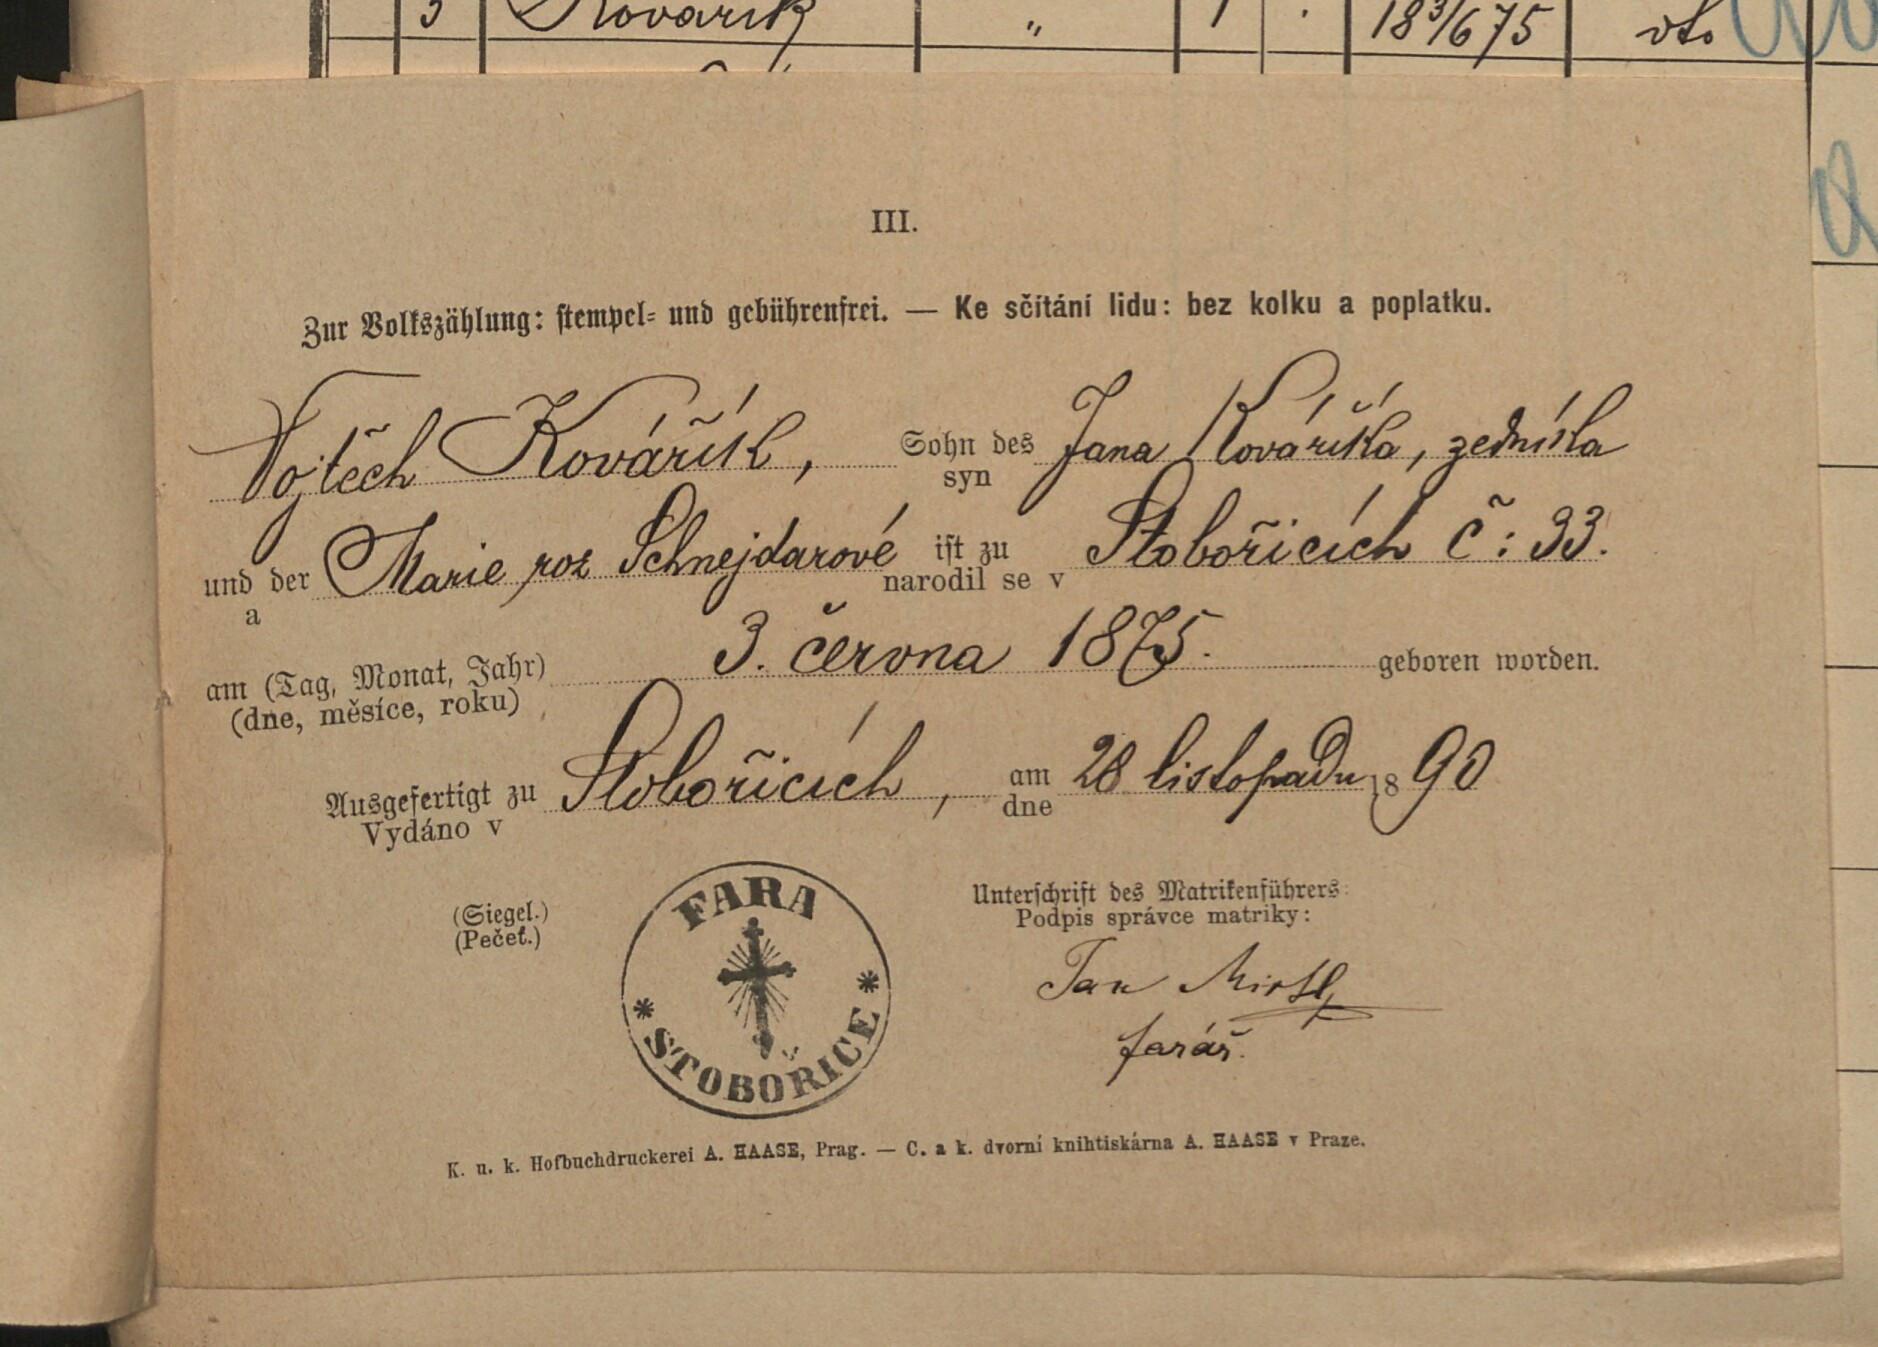 3 Kovářík „ 1 . 18 3/6 75 dto
III.
Zur Volkszählung: stempel- und gebührenfrei. — Ke sčítání lidu: bez kolku a poplatku.
Vojtěch Kovářík, Sohn des Jana Kováříka, zedníka
syn
und der Marie roz Schnejdarové ist zu Stobořicích č: 33.
a narodil se v
am (Tag, Monat, Jahr) 3. června 1875. geboren worden.
(dne, měsíce, roku)
Ausgefertigt zu Stobořicích, am 28 listopadu 1890
Vydáno v dne
(Siegel.) Unterschrift des Matrikenführers:
(Pečeť.) Podpis správce matriky:
FARA
* STOBOŘICE *
Jan
farář.
K. u. k. Hofbuchdruckerei A. HAASE, Prag. — C. a k. dvorní knihtiskárna A. HAASE v Praze.